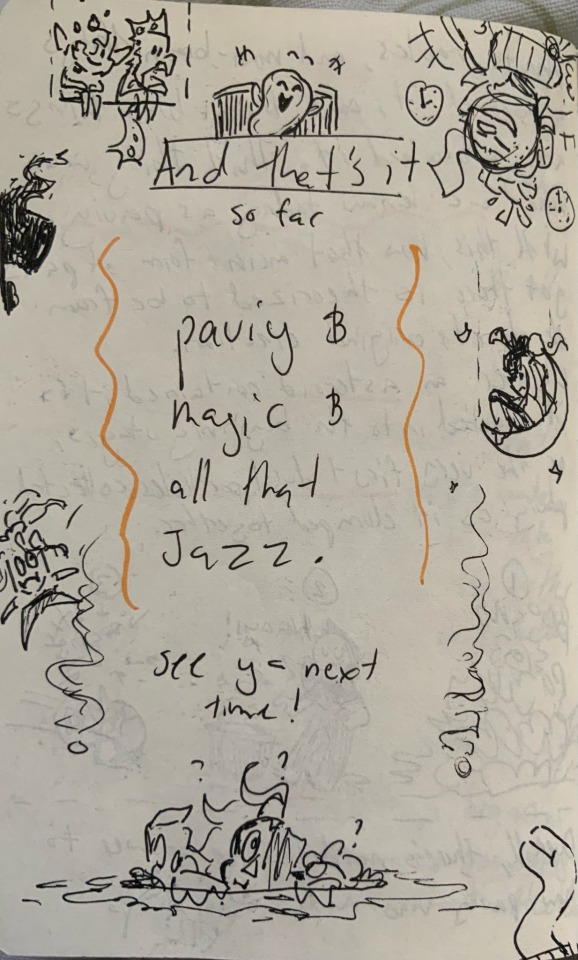 And that's it
so far
paviy &
magic &
all that
Jazz.
see ya next
time!
? ?
?